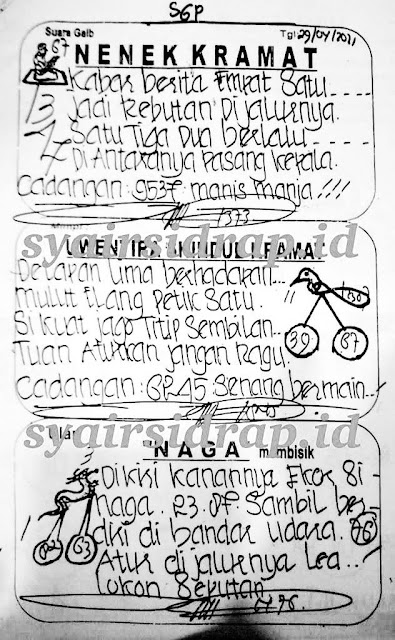 SGP
Suara Gaib
Tgl 29/04/2021
67
NENEK KRAMAT
Kabar berita Empat Satu
Jadi Rebutan Di jalurnya.
Satu Tiga Dua berlalu
Di Antaranya Pasang Kepala.
Cadangan: 9537. manis manja!!!
1373
syairsidrap.id
KRAMAT
Lima berhadapan...
mulut Elang Petik Satu.
Si kuat jago Titip Sembilan..
Tuan Aturkan jangan Ragu
39 87
Cadangan: 6245 Senang bermain..!
syairsidrap.id
NAGA
membisik
Dikiri kanannya Ekor Si
naga. 23. 07. Sambil ber
diri di bandar udara. 76
Atur di jalurnya
63